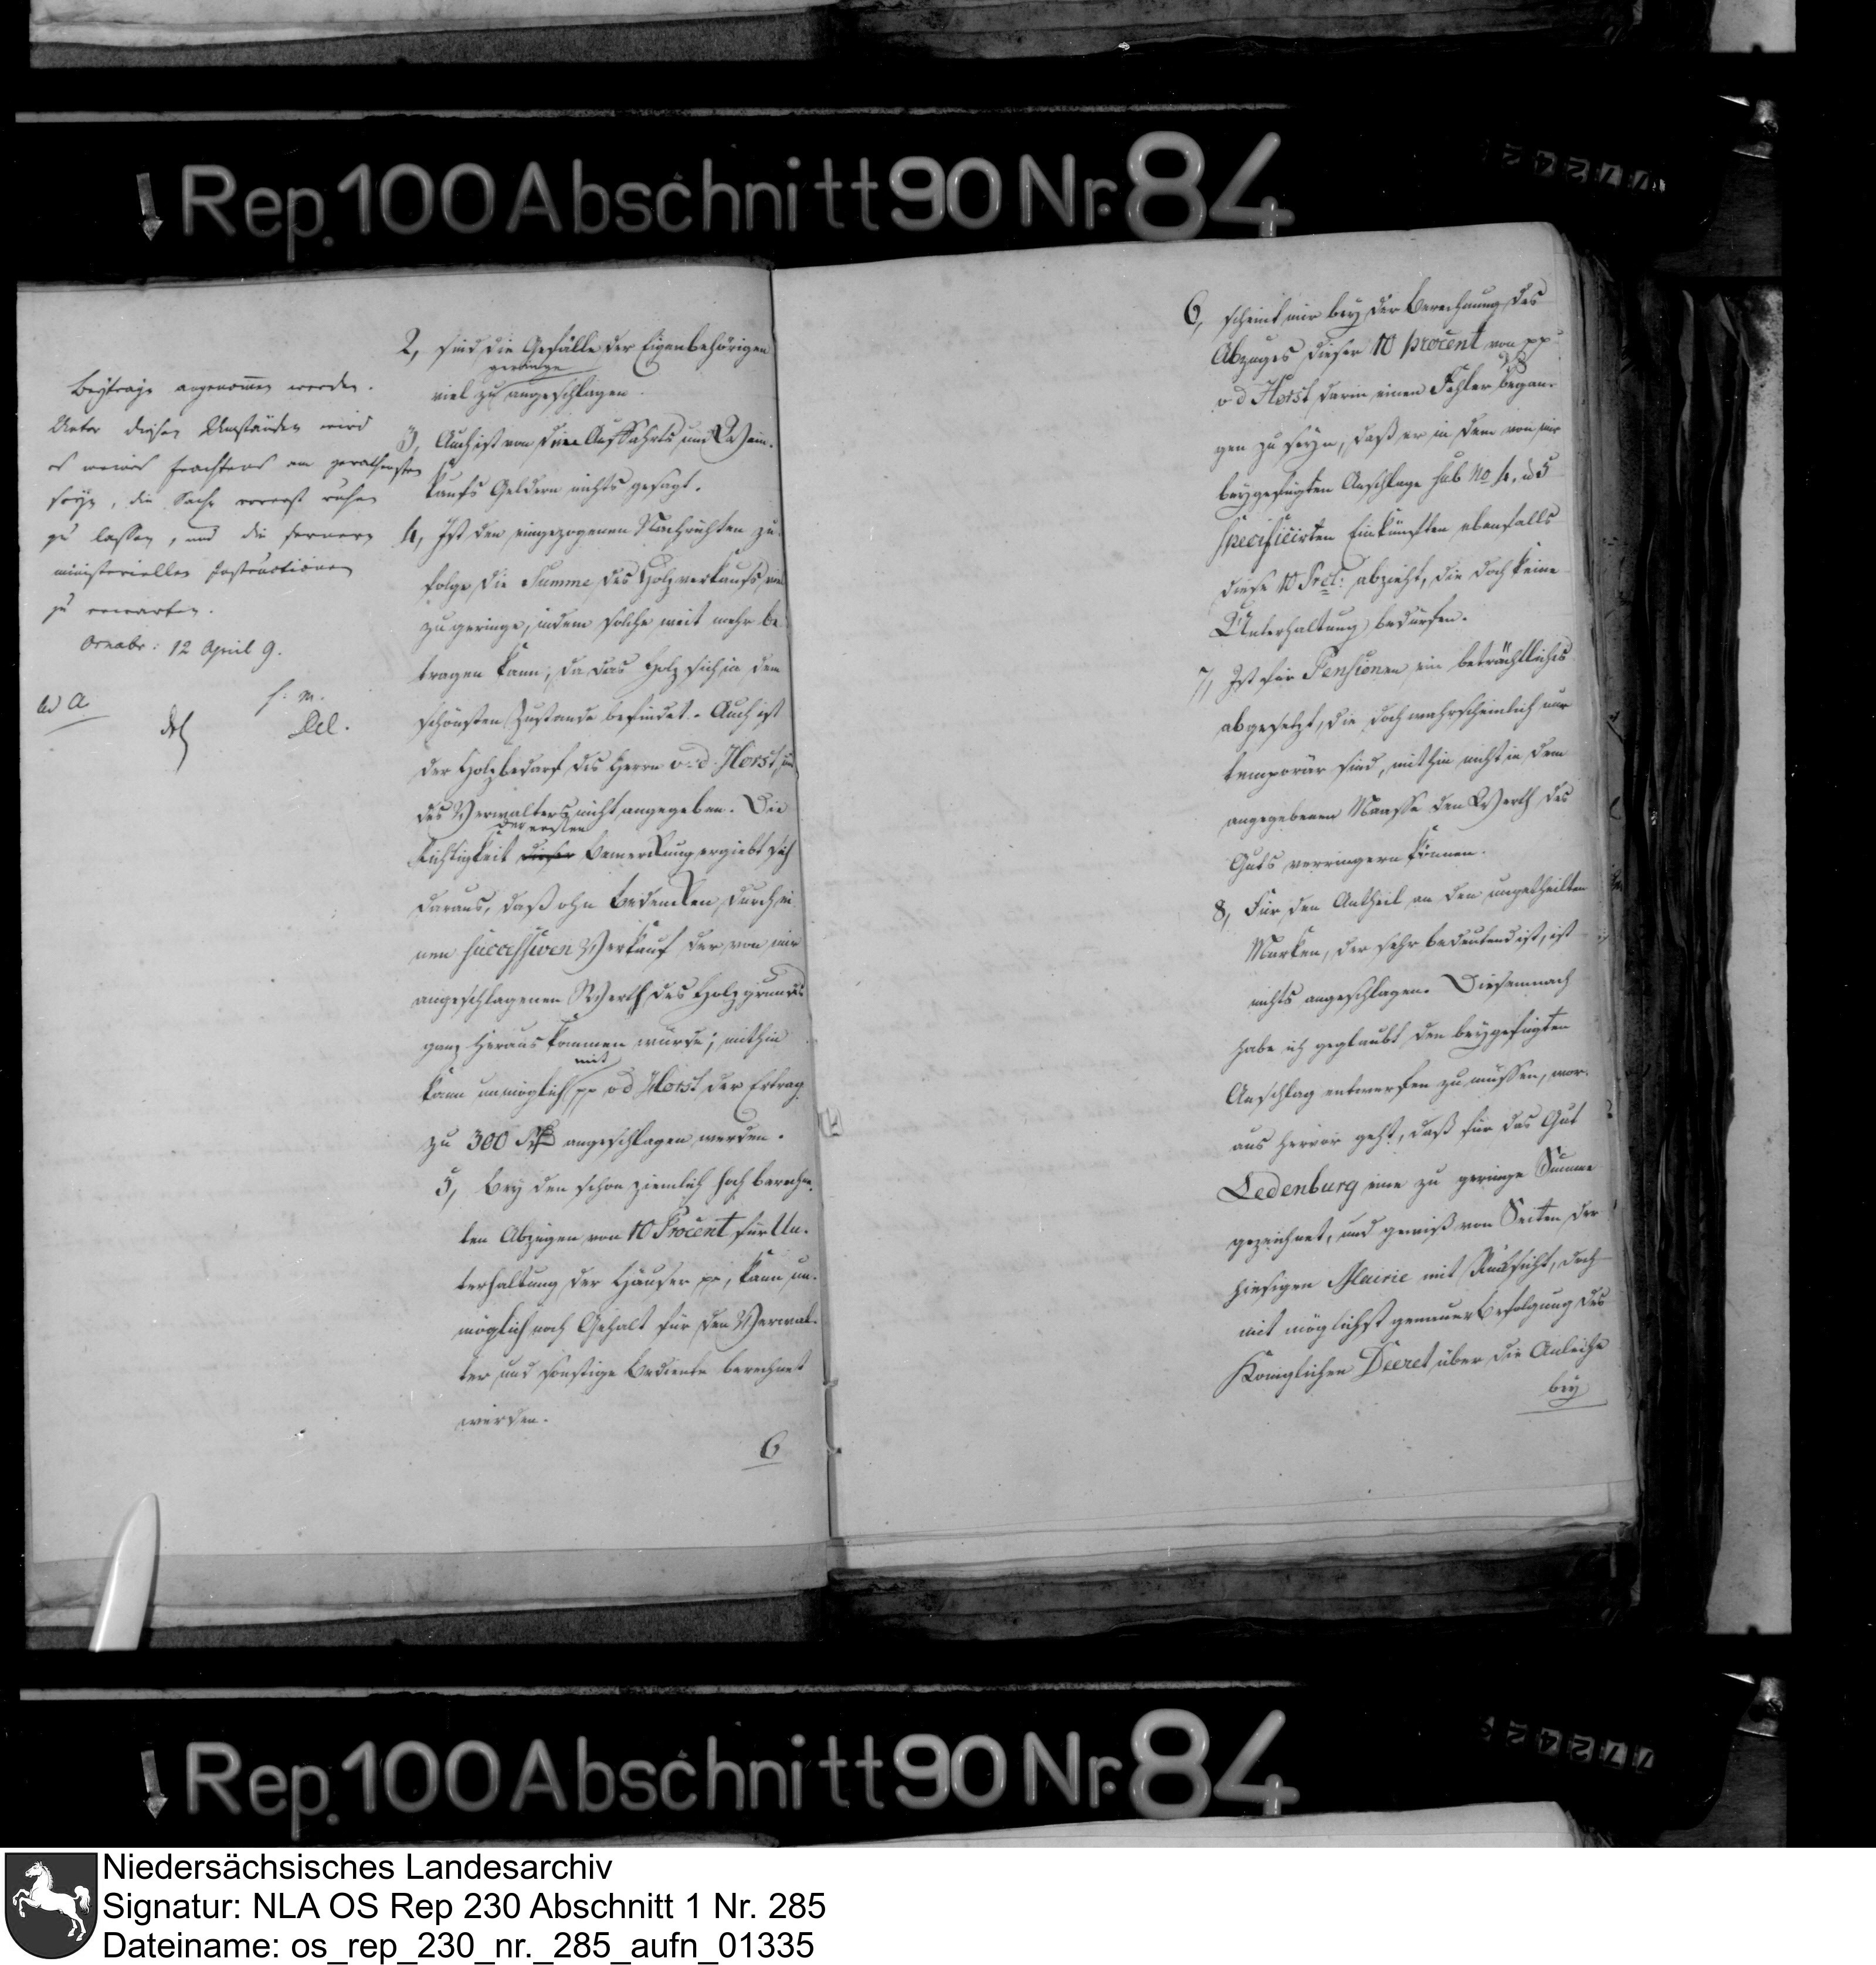 Rep. 100 Abschnitt 90 Nr. 84
Beytrage angenommen werden.
Unter diesen Umständen wird
es meines Erachtens am gerathensten
seyn, die Sache vorerst ruhen
zu lassen, und die fernern
ministeriellen Instructionen
zu erwarten.
Osnabr: 12 April 9.
ad a
s. m.
2, sind die Gefälle der Eigenbehörigen
geringe
viel zu angeschlagen.
3, Auch ist von den Auffahrts und Wein-
kaufs Geldern nichts gesagt.
4, Ist den eingezogenen Nachrichten zu
folge die Summe des Holzverkaufs viel
zu geringe, indem solche weit mehr be
tragen kann, da das Holz sich in dem
schönsten Zustande befindet. Auch ist
der Holzbedarf des Herrn v. d. Horst und
des Verwalters nicht angegeben. Die
der ersten
Richtigkeit dieser Bemerkung ergiebt sich
daraus, daß ohne Bedenken durch ei
nen successiven Verkauf der von mir
angeschlagenen Werth des Holzgrundes
ganz heraus kommen würde; mithin
mit
kann unmöglich pp v d Horst der Ertrag
zu 300 angeschlagen werden.
5, Bey den schon ziemlich hoch berechne
ten Abzügen von 10 Procent für Un-
terhaltung der Häuser pp, kann un-
möglich noch Gehalt für den Verwal-
ter und sonstige Bediente berechnet
werden.
6
6, scheint mir bey der Berechnung des
Abzuges dieser 10 procent von pp
v d Horst darin einen Fehler began-
gen zu seyn, daß er in dem von mir
beygefügten Anschlage sub No 4, u 5
specificirten Einkünften ebenfalls
diese 10 Prct: abzieht, die doch keine
Unterhaltung bedürfen.
7, Ist für Pensionen ein beträchtliches
abgesetzt, die doch wahrscheinlich nur
temporär sind, mithin nicht in dem
angegebenen Maasse den Werth des
Guts verringern können.
8, Für den Antheil an den ungetheilten
Marken, der sehr bedeutend ist, ist
nichts angeschlagen. Diesemnach
habe ich geglaubt den beygefügten
Anschlag entwerfen zu müssen, wor-
aus hervor geht, daß für das Gut
Ledenburg eine zu geringe Summe
gezeichnet, und gewiß von Seiten der
hiesigen Mairie mit Rücksicht, doch
mit möglichst genauer Befolgung des
Königlichen Decret über die Anleihe
bey
Rep. 100 Abschnitt 90 Nr. 84
Niedersächsisches Landesarchiv
Signatur: NLA OS Rep 230 Abschnitt 1 Nr. 285
Dateiname: os_rep_230_nr._285_aufn_01335